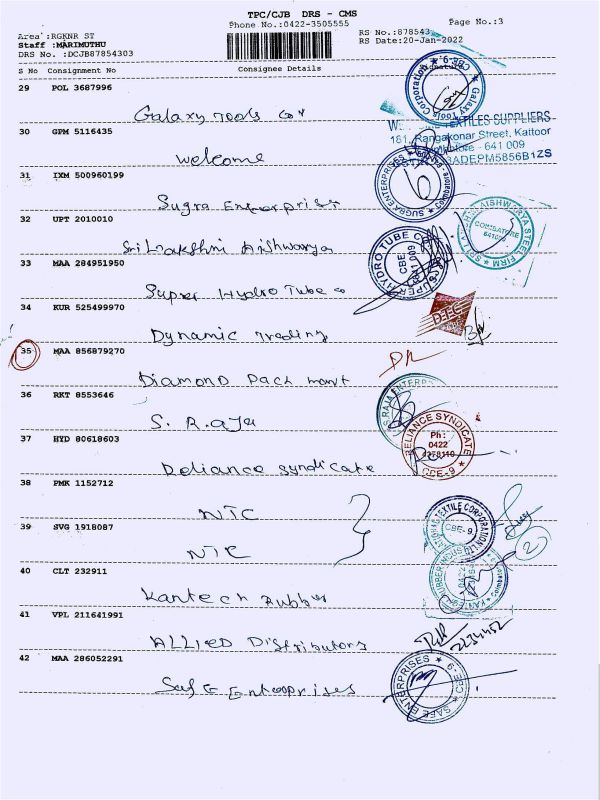 TPC/CJB DRS - CMS
Phone No.:0422-3505555
Page No.:3
Area :RGKNR ST
RS No.:878543
Staff :MARIMUTHU
RS Date:20-Jan-2022
DRS No. :DCJB87854303
S No Consignment No Consignee Details Signature
29 POL 3687996
Galaxy Tools
Galaxy Tools Corporation * CBE-9. *
30 GPM 5116435
welcome
TEXTILES SUPPLIERS
181, Rangakonar Street, Kattoor
641 009
ADEPM5856B1ZS
31 IXM 500960199
Sugra Enterprises
SUGRA ENTERPRISES
32 UPT 2010010
Sri Lakshmi Aishwarya
AISHWARYA STEEL FIRM
COIMBATORE
33 MAA 284951950
Super Hydro Tube Co
SUPER HYDRO TUBE
CBE
641 009
34 KUR 525499970
Dynamic Trading
DTC
35 MAA 856879270
Diamond Pack
36 RKT 8553646
S. Raja
S.RAJA ENTERPRISES
37 HYD 80618603
Reliance Syndicate
RELIANCE SYNDICATE
Ph:
0422
CBE-9
38 PMK 1152712
NTC
TEXTILE CORPORATION LTD
CBE-9.
39 SVG 1918087
NTC
2
40 CLT 232911
Kantech Rubber
0422
41 VPL 211641991
ALLIED Distributors
2234452
42 MAA 286052291
Safe Enterprises
SAFE ENTERPRISES * CBE-9 *